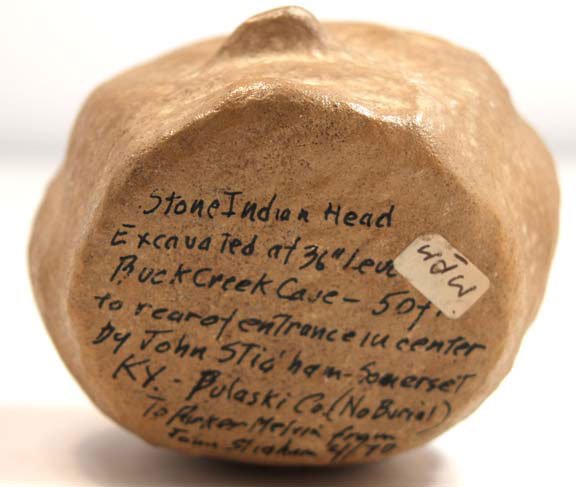 Stone Indian Head
Excavated at 36" Leve
Buck Creek Cave - 50 ft.
to rear of entrance in center
by John Stig'ham - Somerset
KY. - Pulaski Co. (No Burial)
To Parker Melvin from
John Stigham
MPM